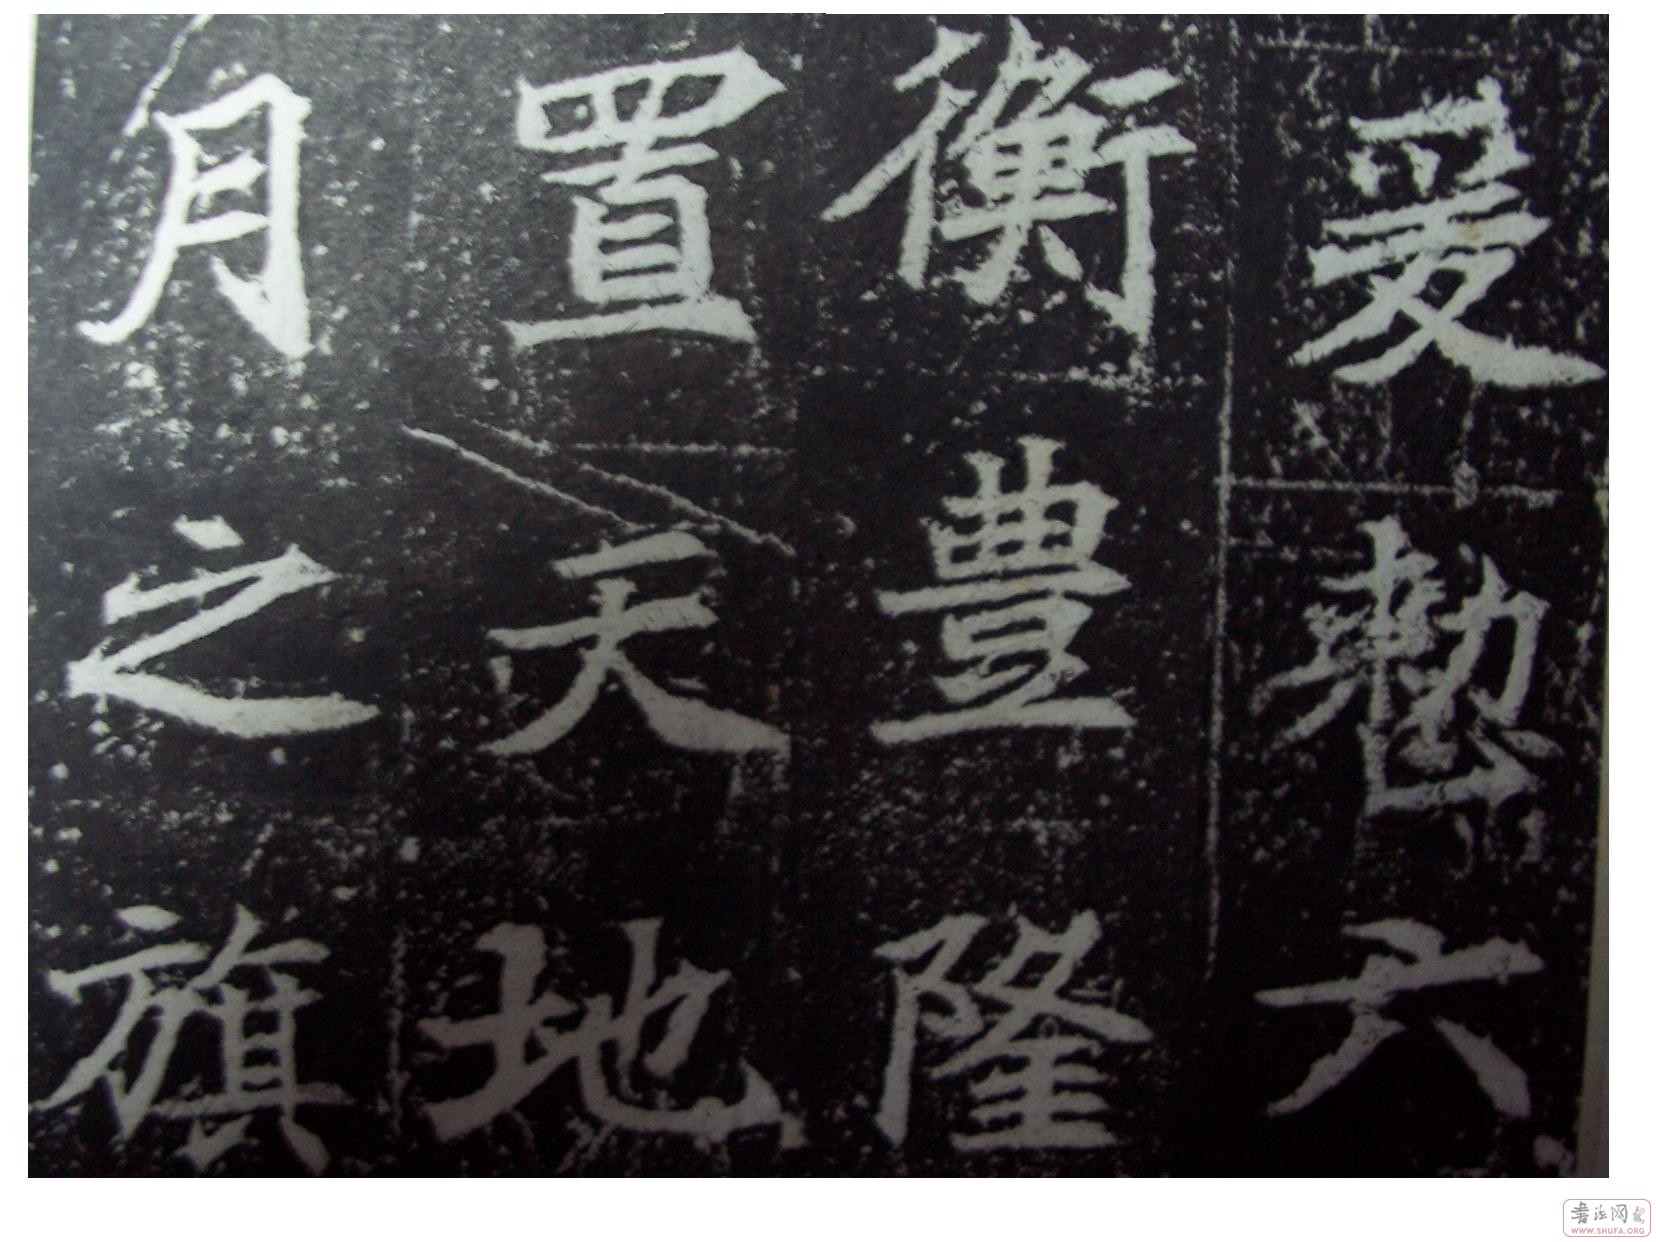 爰整六
衡豊隆
置天地
月之旗
WWW.SHUFA.ORG